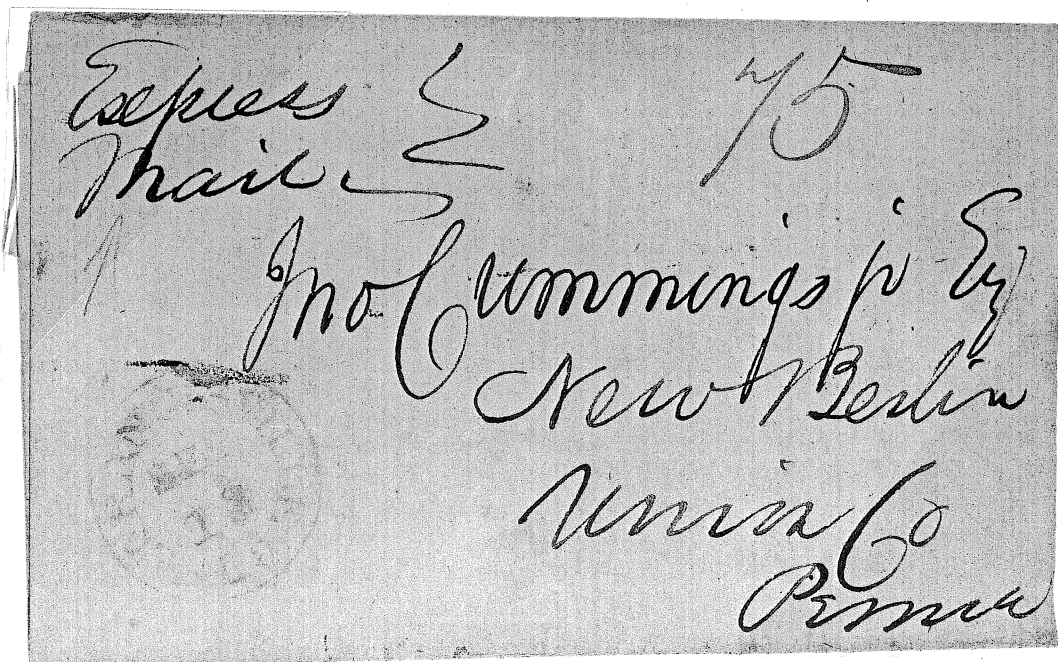 Express
Mail
75
Jno Cummings jr Esq
New Berlin
Union Co
Penna